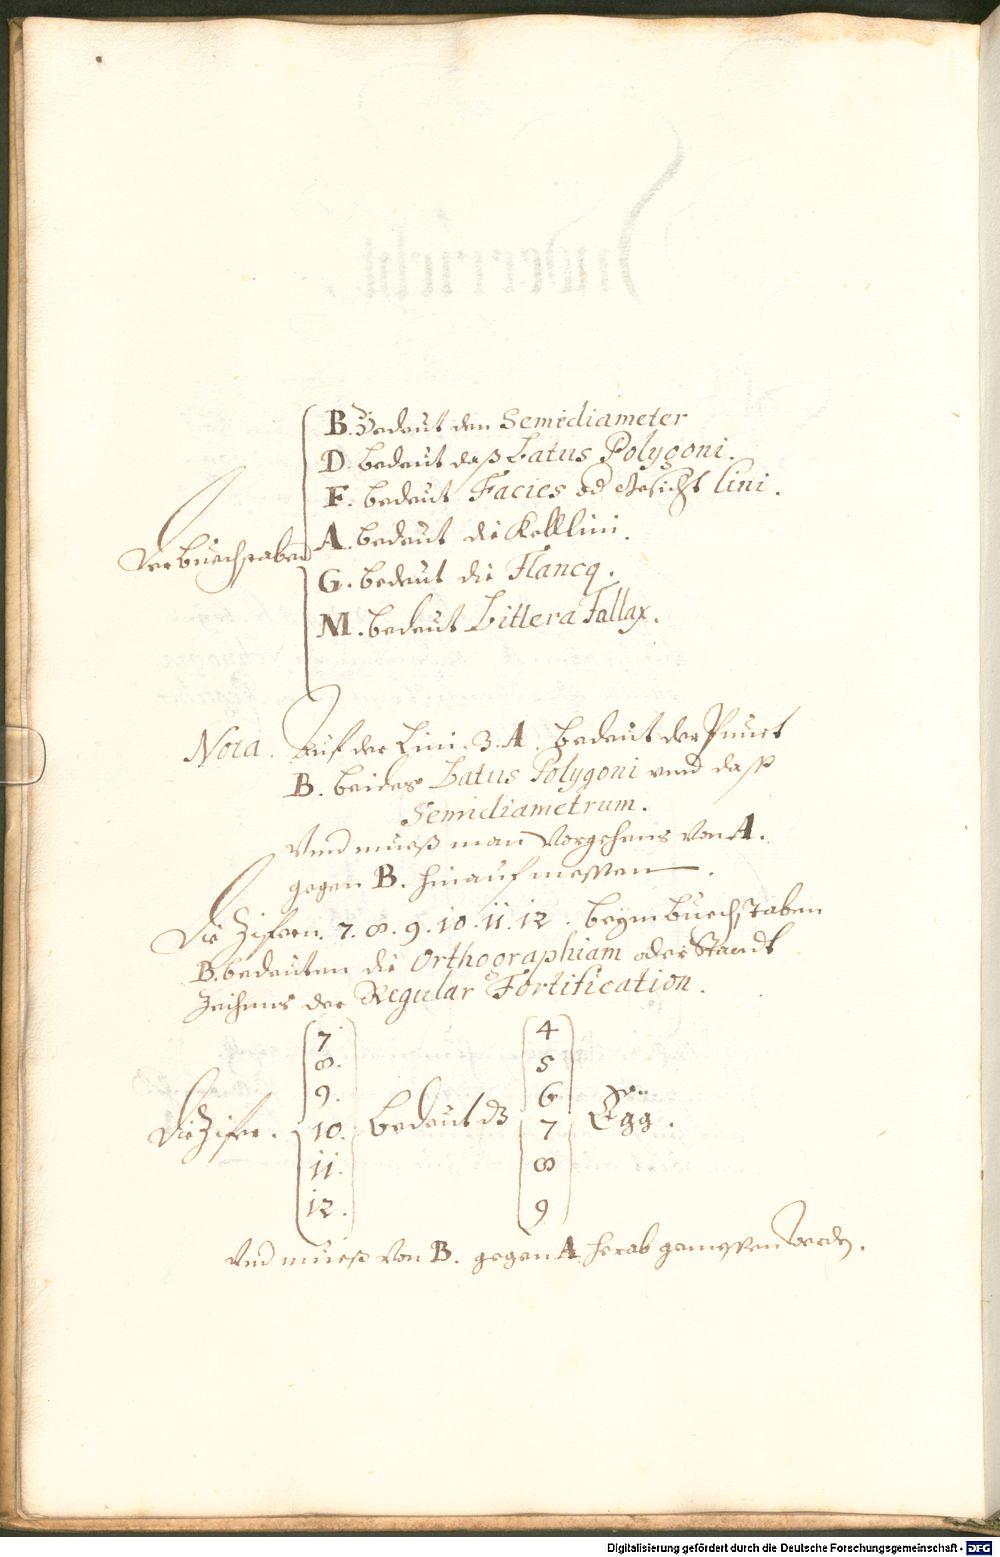 B. Bedeut den Semidiameter
D. bedeut daß Latus Polygoni.
F. bedeut Facies od Gesicht Lini.
Der buechstaben
A. bedeut die Kelllini.
G. bedeut die Flancq.
M. bedeut Littera Fallax.
Nota. Auf der Lini. 3. A. bedeut der Punct
B. beides Latus Polygoni vnd daß
Semidiametrum.
Vnd mueß man Vorgehens Von A.
gegen B. hinauf messen.
Die Zifern. 7. 8. 9. 10. 11. 12. beym buechstaben
B. bedeuten die Orthographiam oder Standt
Zeichnus der Regular Fortification.
7. 4
8. 5
9. 6
Die Zifer. 10. Bedeut dz 7 Egg.
11. 8
12. 9
Vnd mueß Von B. gegen A. herab gemessen werdn.
Digitalisierung gefördert durch die Deutsche Forschungsgemeinschaft - DFG